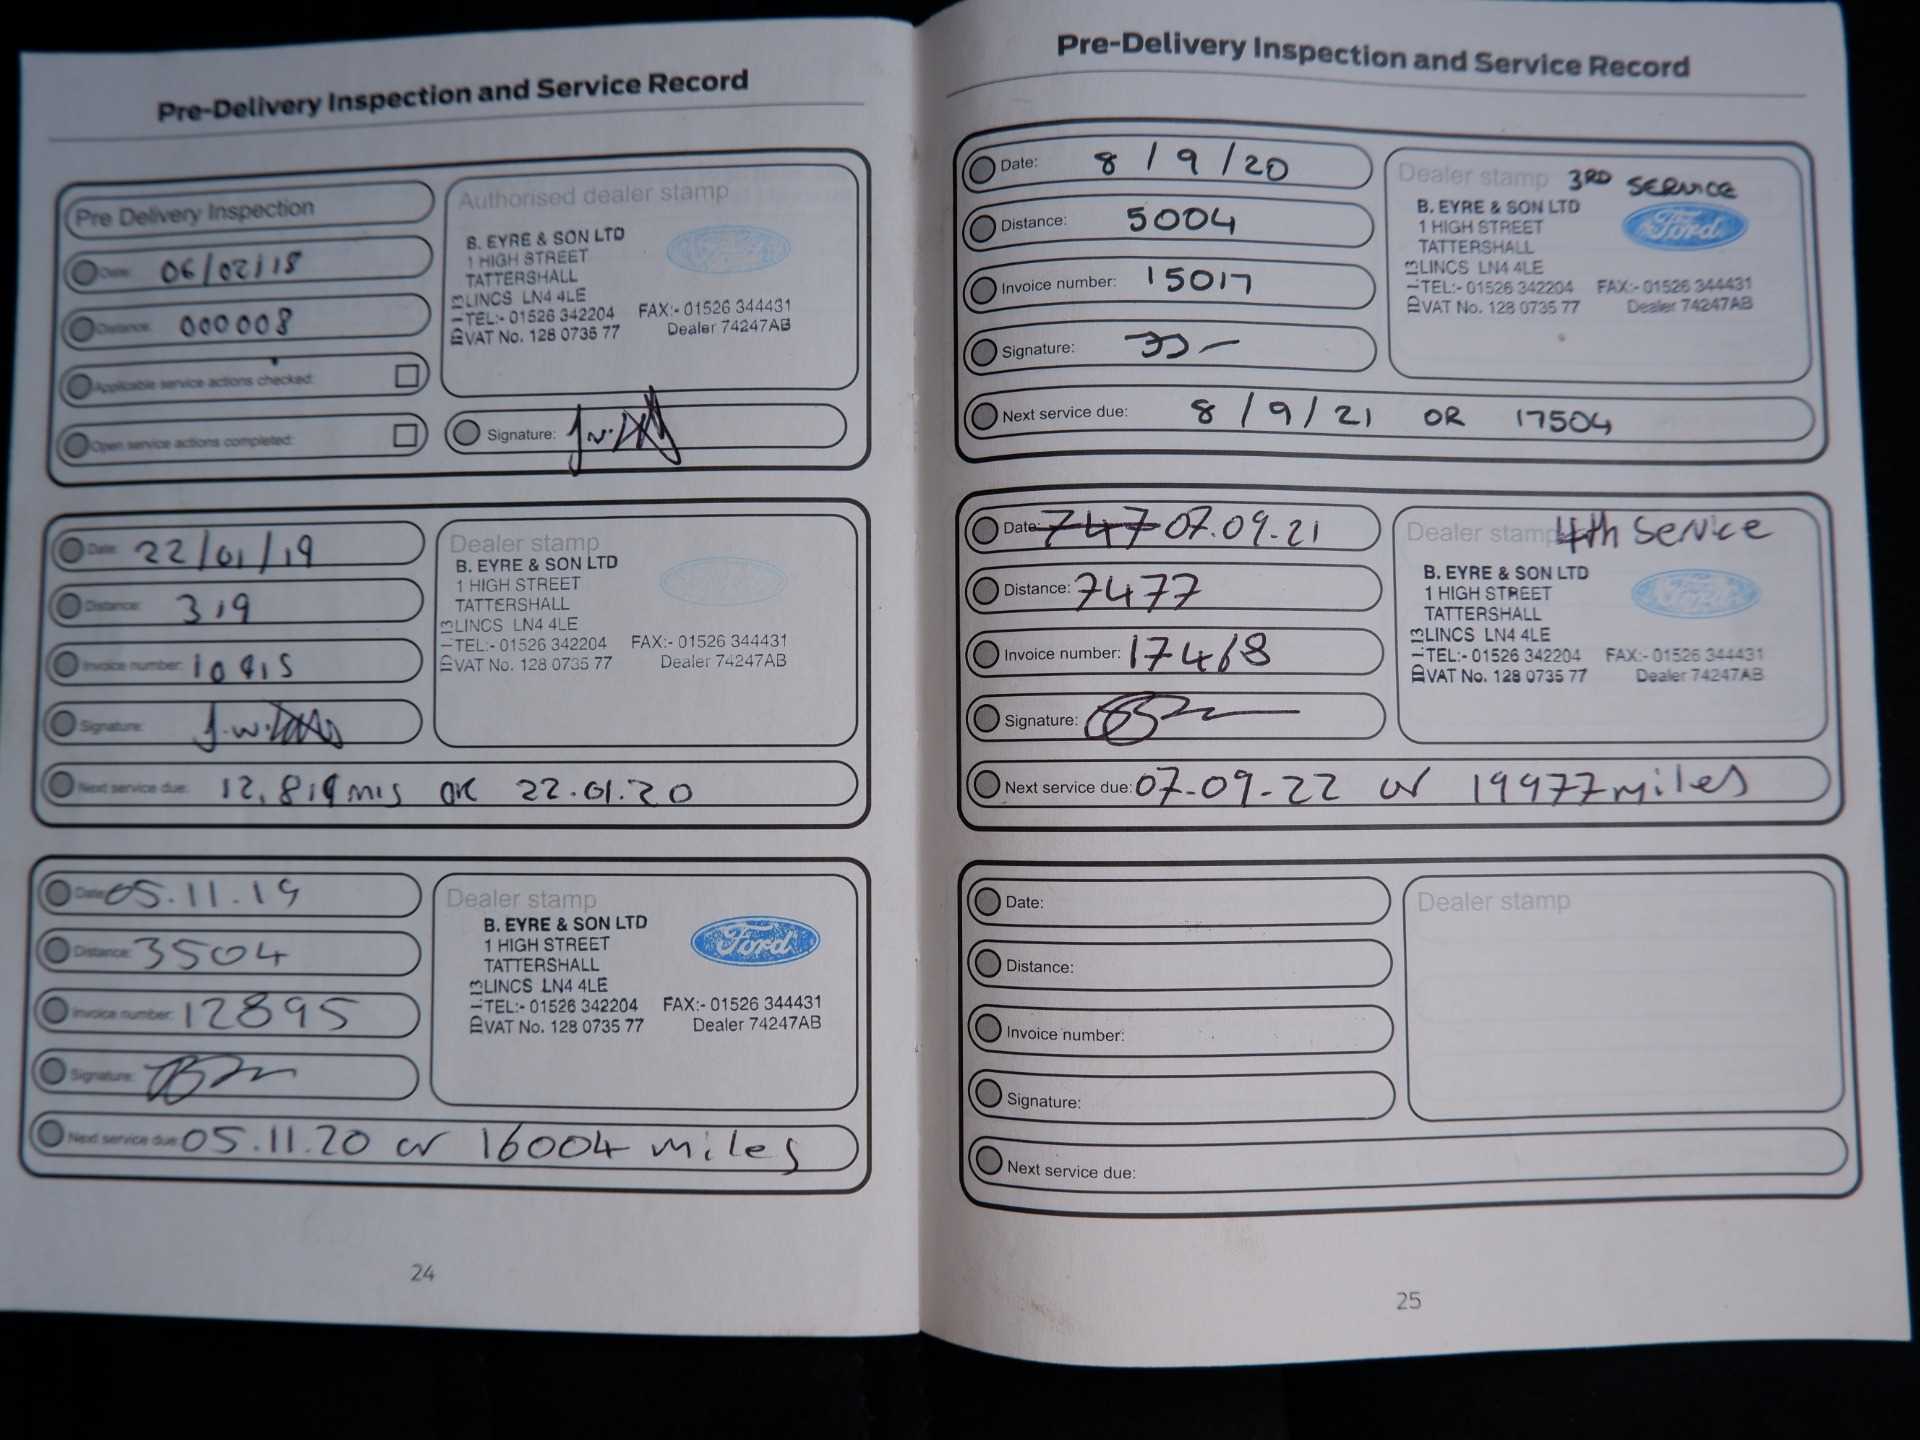 Pre-Delivery Inspection and Service Record
Pre Delivery Inspection
Date: 06/02/18
Distance: 000008
Applicable service actions checked:
Open service actions completed:
Authorised dealer stamp
B. EYRE & SON LTD
1 HIGH STREET
TATTERSHALL
LINCS LN4 4LE
TEL:- 01526 342204 FAX:- 01526 344431
VAT No. 128 0735 77 Dealer 74247AB
Signature:
Date: 22/01/19
Distance: 319
Invoice number: 10915
Signature:
Dealer stamp
B. EYRE & SON LTD
1 HIGH STREET
TATTERSHALL
LINCS LN4 4LE
TEL:- 01526 342204 FAX:- 01526 344431
VAT No. 128 0735 77 Dealer 74247AB
Next service due: 12,819 mls OR 22.01.20
Date: 05.11.19
Distance: 3504
Invoice number: 12895
Signature:
Dealer stamp
B. EYRE & SON LTD
Ford
1 HIGH STREET
TATTERSHALL
LINCS LN4 4LE
TEL:- 01526 342204 FAX:- 01526 344431
VAT No. 128 0735 77 Dealer 74247AB
Next service due: 05.11.20 or 16004 miles
24
Pre-Delivery Inspection and Service Record
Date: 8/9/20
Distance: 5004
Invoice number: 15017
Signature:
Dealer stamp 3RD SERVICE
B. EYRE & SON LTD
Ford
1 HIGH STREET
TATTERSHALL
LINCS LN4 4LE
TEL:- 01526 342204 FAX:- 01526 344431
VAT No. 128 0735 77 Dealer 74247AB
Next service due: 8/9/21 OR 17504
Date: 747 07.09.21
Distance: 7477
Invoice number: 17468
Signature:
Dealer stamp 4th Service
B. EYRE & SON LTD
Ford
1 HIGH STREET
TATTERSHALL
LINCS LN4 4LE
TEL:- 01526 342204 FAX:- 01526 344431
VAT No. 128 0735 77 Dealer 74247AB
Next service due: 07-09-22 or 19977 miles
Date:
Distance:
Invoice number:
Signature:
Dealer stamp
Next service due:
25